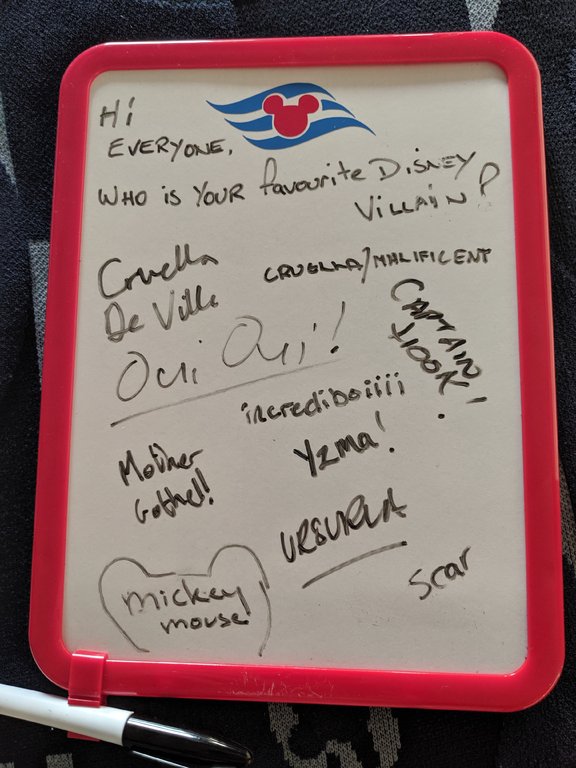 Hi
EVERYONE,
WHO IS YOUR favourite DiSNEY
ViLLAiN?
Cruella
De Ville
CRUELLA/MALIFICENT
CAPTAIN
HOOK!
Oui Oui!
incrediboiiii
Yzma!
Mother
Gothel!
URSURLA
Scar
mickey
mouse